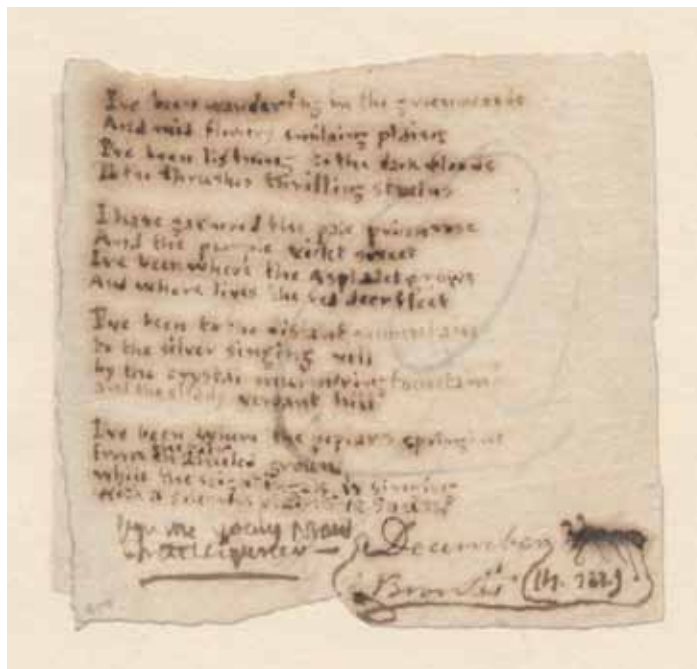 I've been wandering in the greenwoods
And mid flowery smiling plains
I've been listning to the dark floods
To the thrushes thrilling strains

I have gathered the pale primrose
And the purple violet sweet
I've been where the Asphodel grows
And where lives the red deer fleet

I've been to the distant mountains
To the silver singing rill
By the crystal murmering fountain
and the shady verdant hill

I've been where the poplar is springing
From the
while the nightingale is singing
With a solemn
December
Brontë
14. 1829